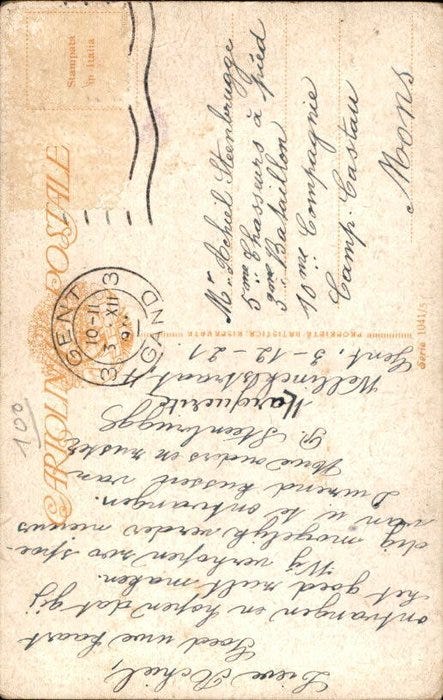 CARTOLINA POSTALE
Stampata
in Italia
GENT 3
10-11
3-XII
GAND
3
Mr. Achiel Steenbrugge
5me Chasseurs à pied
3me Bataillon
10me Compagnie
Camp Castau
Mons
PROPRIETÀ ARTISTICA RISERVATA
Serie 1041/5
100
Gent, 3-12-21.
Wellinckstraat, 11
Lieve Achiel,
Goed uwe kaart
ontvangen en hopen dat gij
het goed zult maken.
Wij verhopen zoo spoe-
dig mogelyk verder nieuws
van u te ontvangen.
Duizend kussen van
Uwe ouders en zuster
G. Steenbrugge
Marguerite